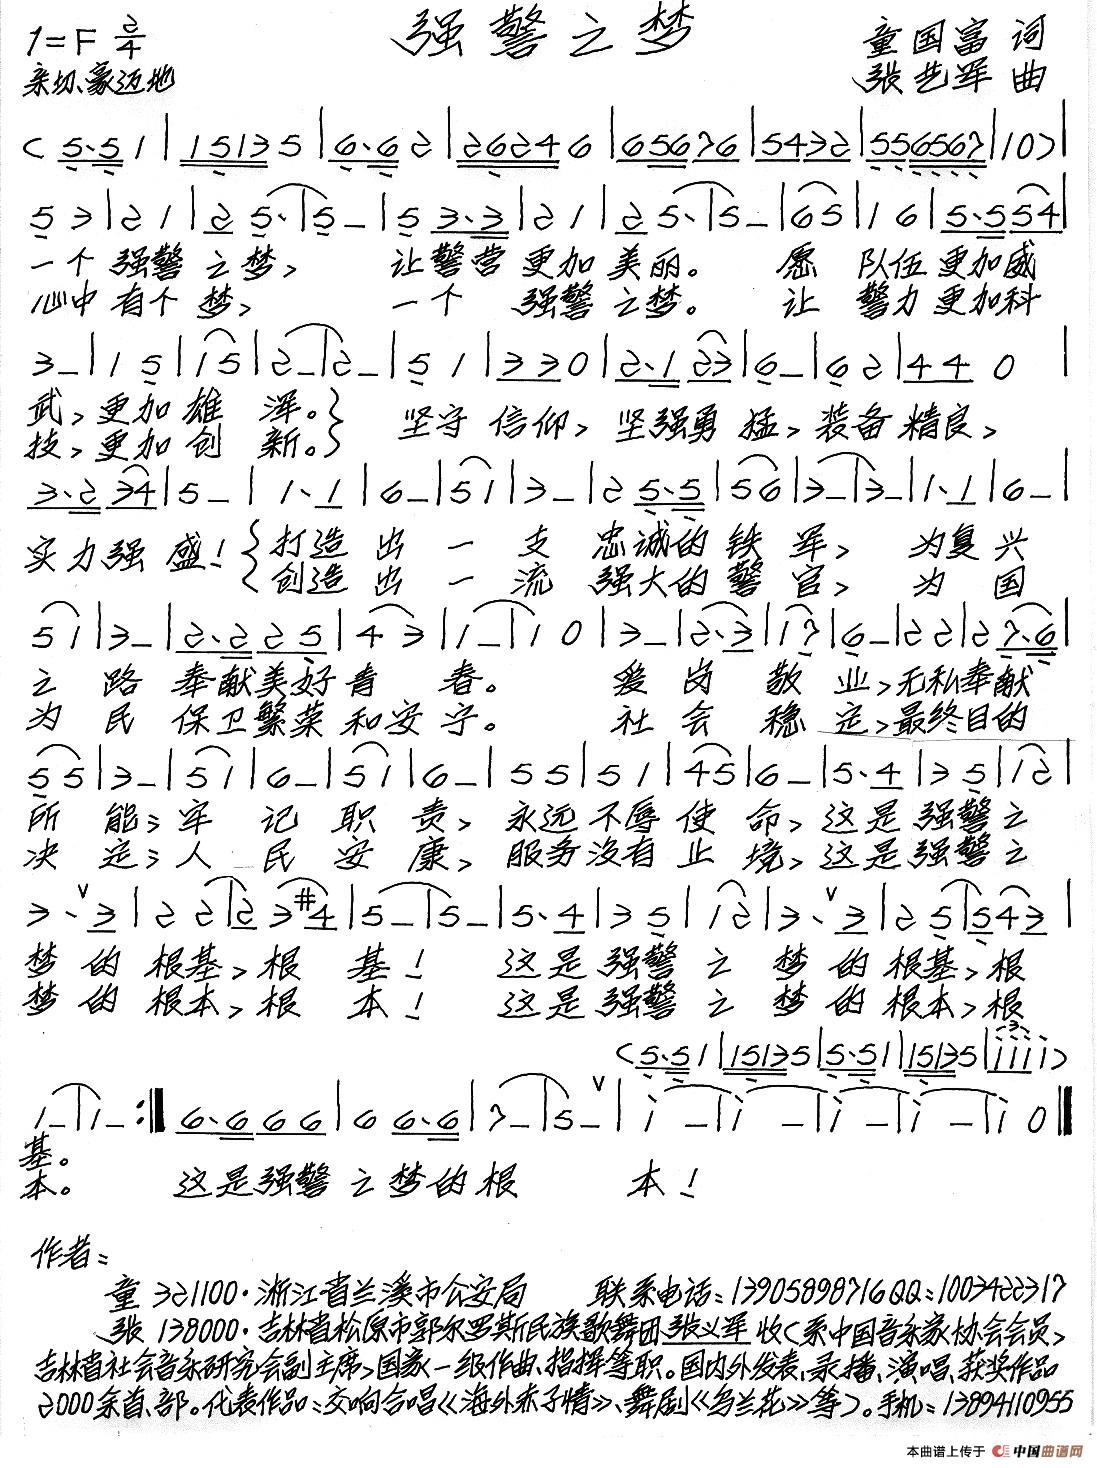 强警之梦
1=F 2/4
童国富 词
亲切、豪迈地
张艺军 曲
( 5·5 1 | 1513 5 | 6·6 2 | 2624 6 | 65676 | 5432 | 556567 | 10 ) |
5 3 | 2 1 | 2 5· | 5 – | 5 3·3 | 2 1 | 2 5· | 5 – | 65 | 1 6 | 5·554 |
一个 强警 之梦, 让警营 更加美丽。 愿 队伍更加威
心中有个 梦, 一个 强警之梦。 让 警力更加科
3 – | 1 5 | 15 | 2 – | 2 – | 5 1 | 330 | 2·1 23 | 6 – | 6 2 | 44 0 |
武,更加雄 浑。} 坚守信仰,坚强勇猛,装备精良,
技,更加创 新。}
3·2 34 | 5 – | 1·1 | 6 – | 51 | 3 – | 2 5·5 | 56 | 3 – | 3 – | 1·1 | 6 – |
实力强盛! {打造出一支 忠诚的铁军, 为复兴
{创造出一流 强大的警官, 为国
51 | 3 – | 2·2 25 | 43 | 1 – | 10 | 3 – | 2·3 | 17 | 6 – | 22 | 27·6 |
之 路 奉献美好青 春。 爱岗敬业,无私奉献
为 民 保卫繁荣和安宁。 社会稳定,最终目的
55 | 3 – | 51 | 6 – | 51 | 6 – | 55 | 51 | 45 | 6 – | 5·4 | 35 | 12 |
所 能;牢记职责,永远不辱使命,这是强警之
决 定;人民安康,服务没有止境,这是强警之
3·∨3 | 2 2 | 2 3#4 | 5 – | 5 – | 5·4 | 3 5 | 12 | 3·∨3 | 2 5 | 543 |
梦的根基,根 基! 这是强警之梦的根基,根
梦的根本,根 本! 这是强警之梦的根本,根
( 5·51 | 15135 | 5·51 | 15135 | 1111 )
1 – | 1 – :‖ 6·666 | 6 6·6 | 7 – | 5 – ∨ | i – | i – | i – | i – | i 0 ‖
基。
本。 这是强警之梦的根 本!
作者:
童 321100·浙江省兰溪市公安局 联系电话:13905898716 QQ:1003422317
张 138000·吉林省松原市郭尔罗斯民族歌舞团张义军收(系中国音乐家协会会员,
吉林省社会音乐研究会副主席,国家一级作曲、指挥等职。国内外发表、录播、演唱、获奖作品
2000余首、部。代表作品:交响合唱《海外赤子情》、舞剧《乌兰花》等)。手机:13894110955
本曲谱上传于 中国曲谱网